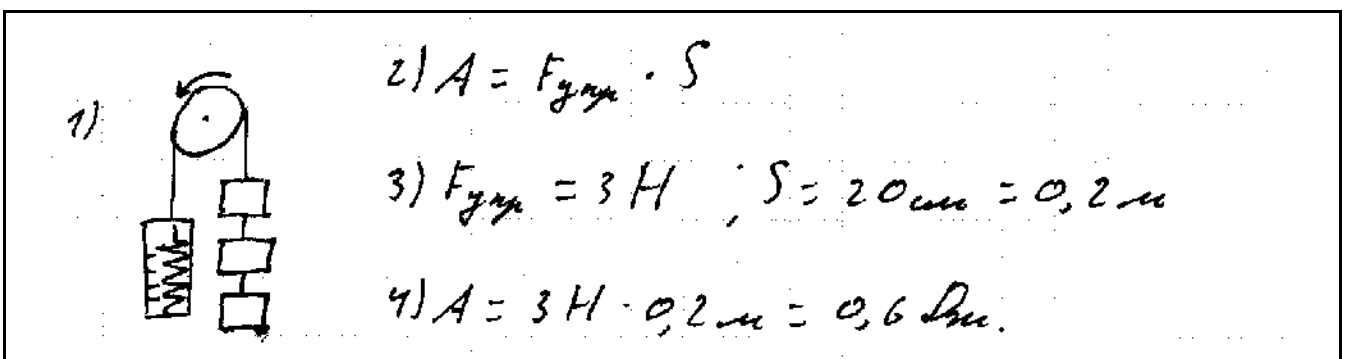 1)
2) A = Fупр · S
3) Fупр = 3 Н ; S = 20 см = 0,2 м
4) A = 3 Н · 0,2 м = 0,6 Дж.